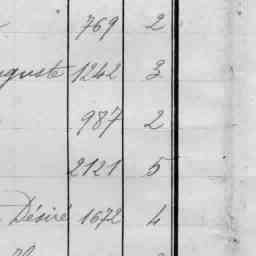 769 2
uguste 1242 3
987 2
2121 5
Désiré 1672 4